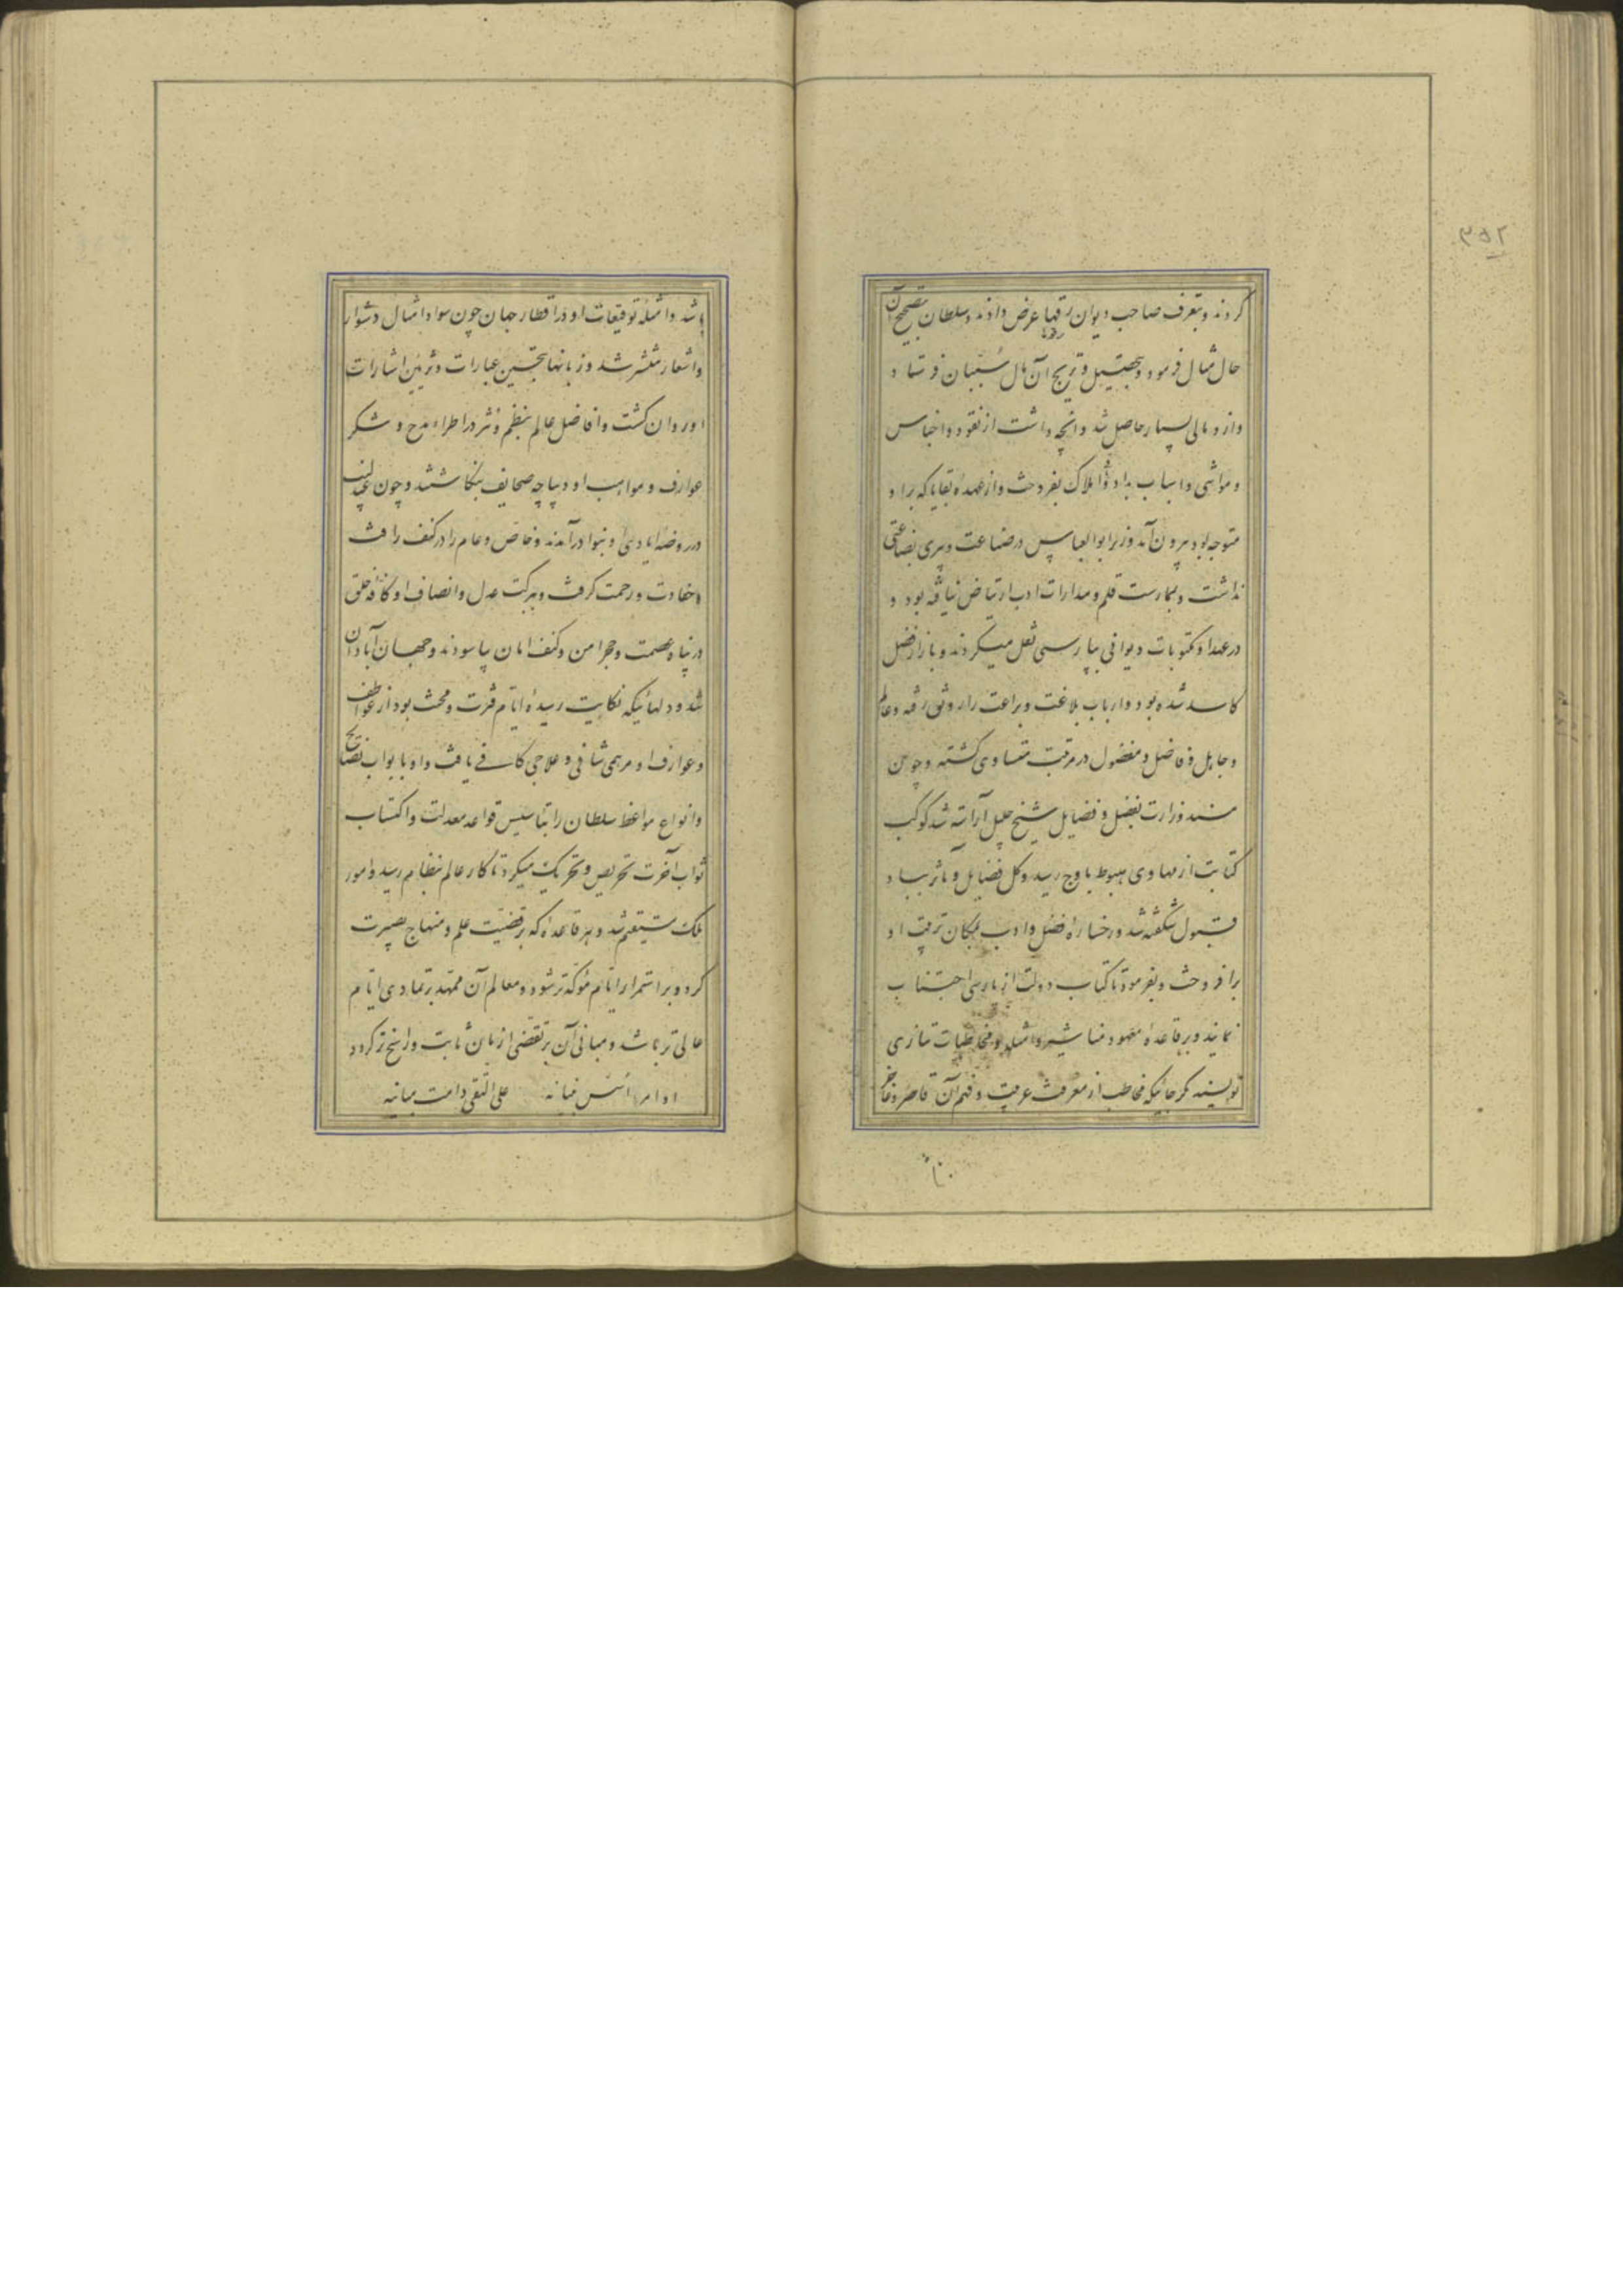 ۳۵۲
کردند و بتعرف صاحب دیوان رقمها عرض دادند و سلطان بتصحیح آن
حال مثال فرمود و بتحصیل و ترویج آن مال مسببان فرستاد و
و از و مالی بسیار حاصل شد و آنچه داشت از نقود و اجناس
و مواشی و اسباب بداد و املاک بفروخت و از عهده بقایا که بر او
متوجه بود بیرون آمد وزیر ابوالعباس در صناعت دبیری بضاعتی
نداشت و بممارست قلم و مدارات ادب ارتیاض نیافته بود و
در عهد او مکتوبات دیوانی بپارسی نقل میکردند و بازار فضل
کاسد شده بود و ارباب بلاغت و براعت را رونق رفته و عالم
و جاهل و فاضل و مفضول در مرتبت متساوی گشته و چون
مسند وزارت بفضل و فضایل شیخ جلیل آراسته شد کوکب
کتابت از مهاوی هبوط باوج رسید و گل فضایل و مآثر بباد
قبول شکفته شد و رخساره فضل و ادب بمکان تربیت او
برافروخت و بفرمود تا کتاب دولت از پارسی اجتناب
نمایند و بر قاعده معهود مناشیر و امثله و مخاطبات بتازی
نویسند مگر جائیکه مخاطب از معرفت عربیت و فهم آن قاصر و عاجز
باشد و امثله توقیعات او در اقطار جهان چون سواد امثال و شوارد
و اشعار منتشر شد و زبانها بتحسین عبارات و تزیین اشارات
او روان گشت و افاضل عالم بنظم و نثر در اطراء مدح و شکر
عوارف و مواهب او دیباچه صحایف بنگاشتند و چون عندلیب
در روضه ایادی او بنوا درآمدند و خاص و عام را در کنف رأفت
و حفاوت و رحمت گرفت و ببرکت عدل و انصاف او کافه خلق
در پناه عصمت و حجر امن و کنف امان بیاسودند و جهان آبادان
شد و دلهائیکه نکایت رسیده ایام فترت و محنت بود از عواطف
و عوارف او مرهمی شافی و علاجی کافی یافت و او بابواب نصایح
و انواع مواعظ سلطان را بتاسیس قواعد معدلت و اکتساب
ثواب آخرت تحریص و تحریک میکرد تا کار عالم بنظام رسید و امور
ملک مستقیم شد و هر قاعده که بر قضیت علم و منهاج بصیرت
گردد بر استمرار ایام مؤکدتر شود و معالم آن ممهد بر تمادی ایام
عالی تر باشد و مبانی آن بر تقضی ازمان ثابت و راسخ تر گردد
اسس بنیانه علی التقی دامت مبانیه